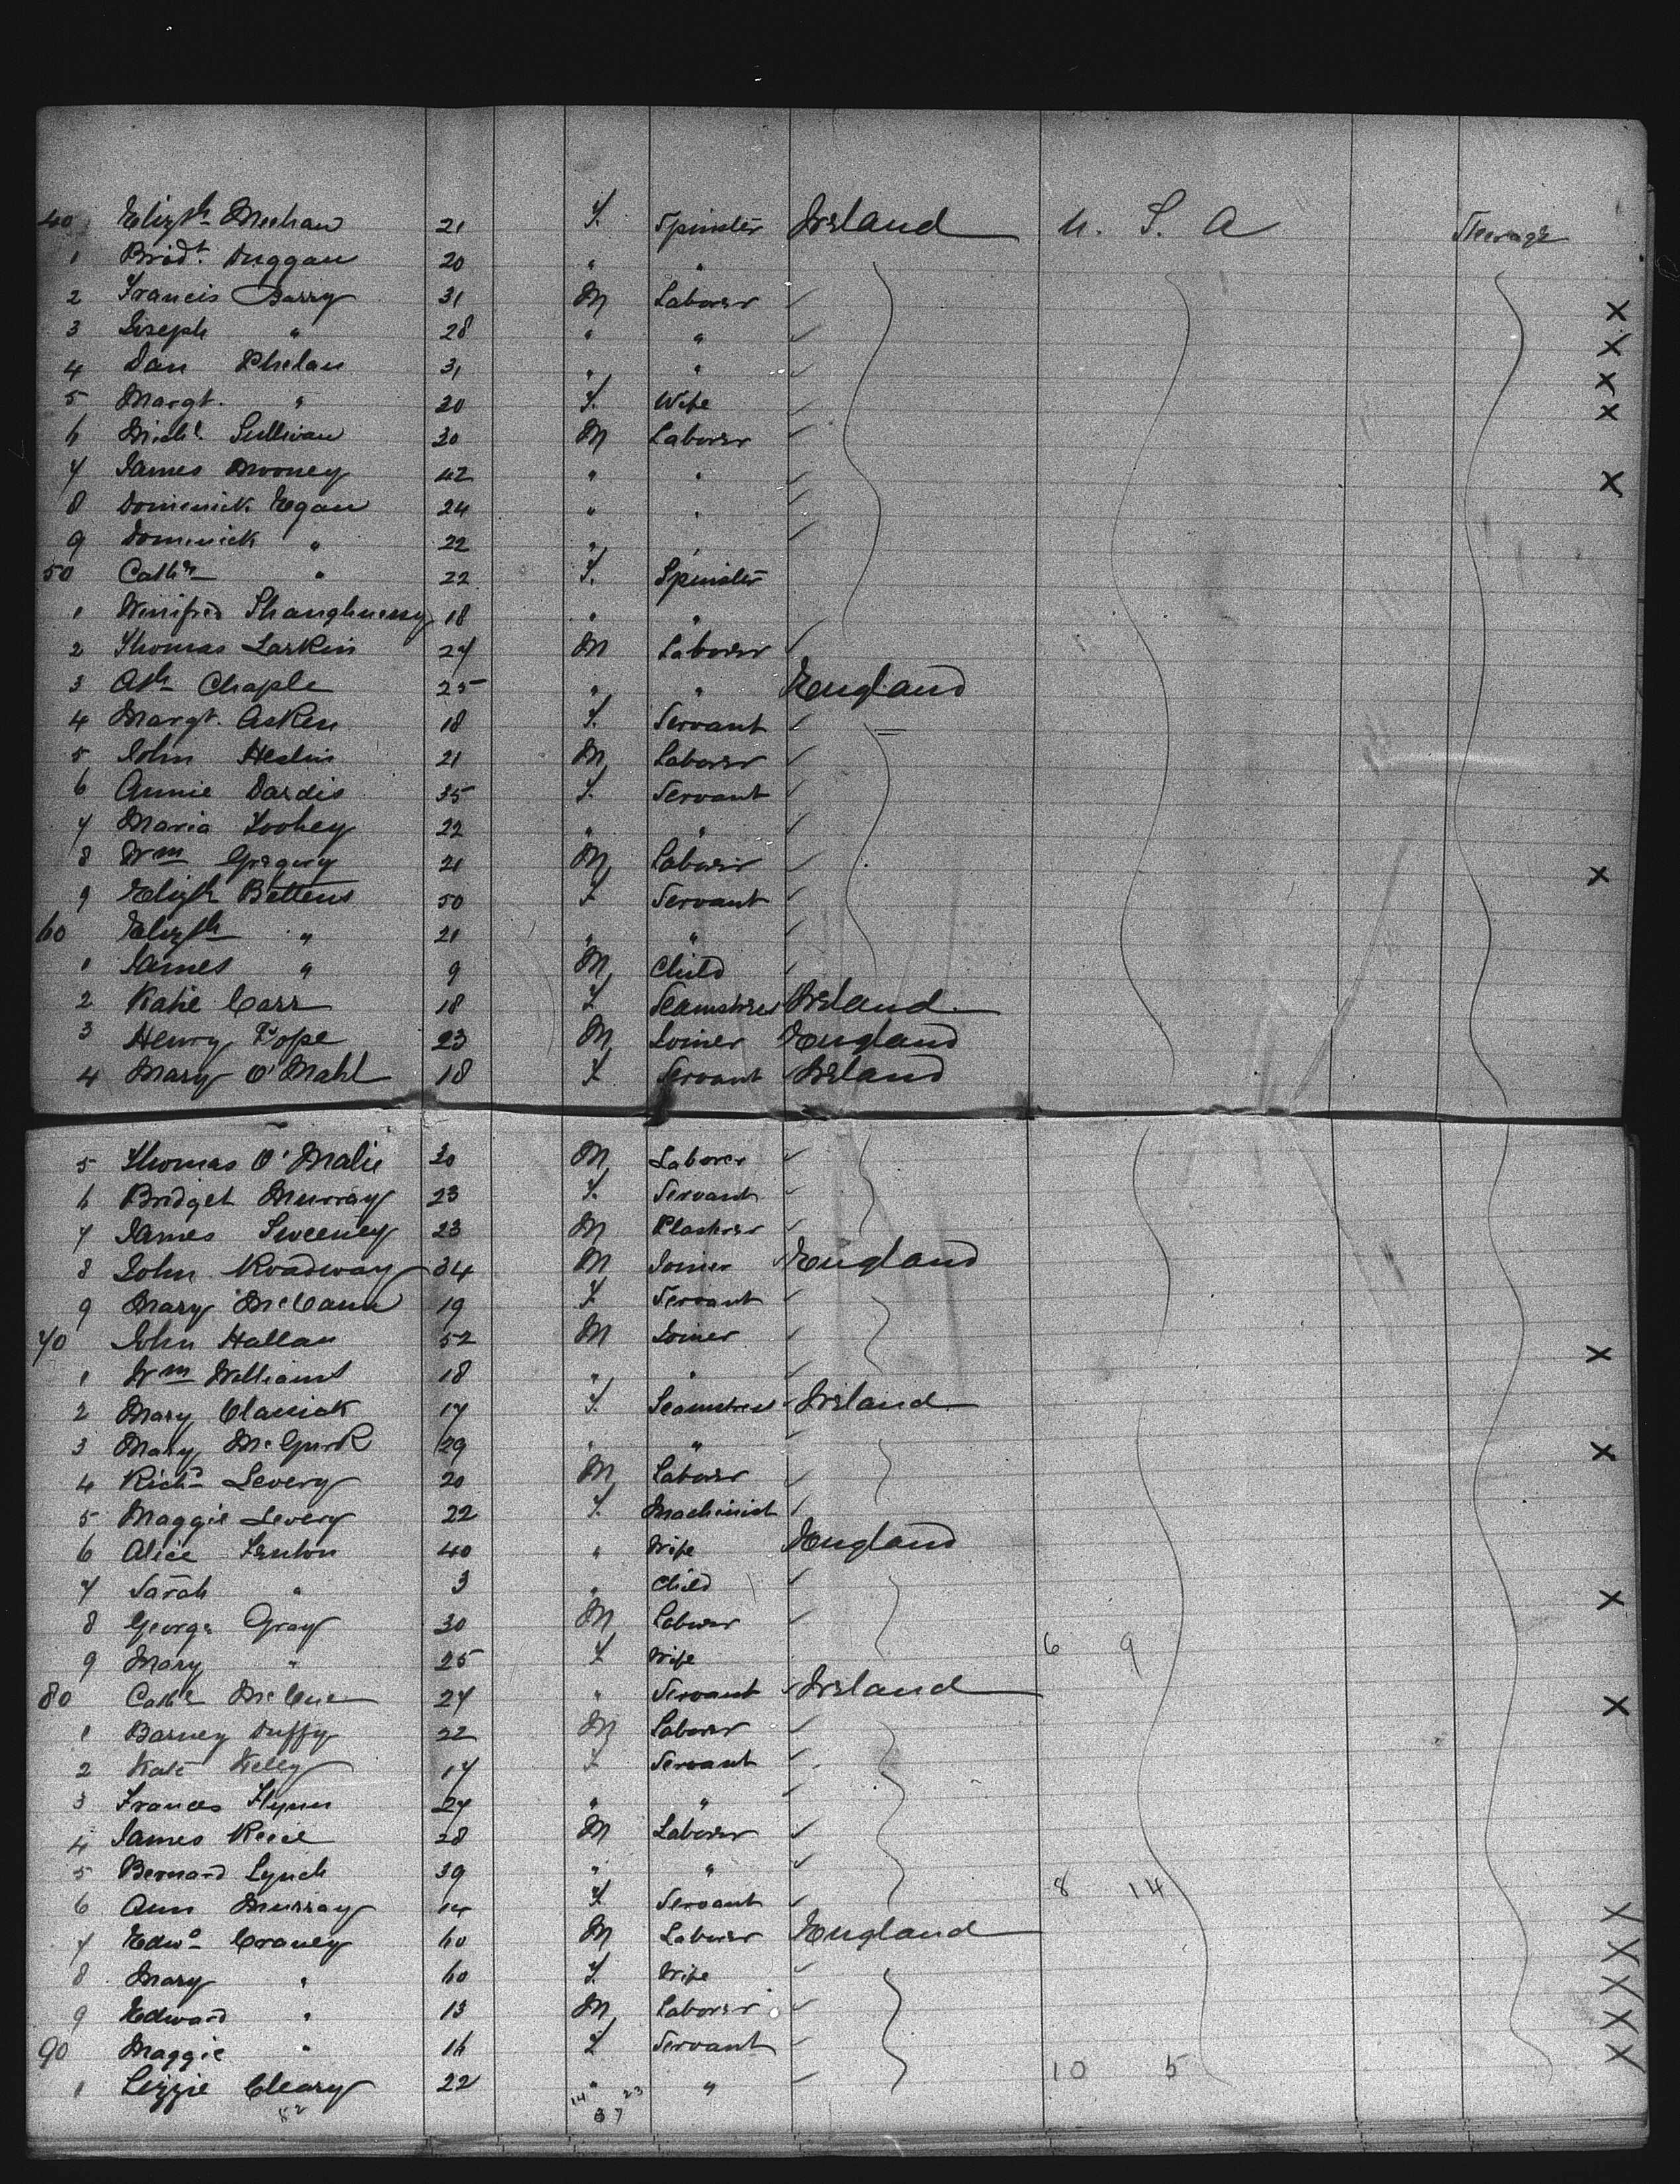 40 Elizth Meehan 21 F. Spinster Ireland U. S. A Steerage
1 Bridt. Duggan 20 " "
2 Francis Barry 31 M Laborer ✓ X
3 Joseph " 28 " " ✓ X
4 Dan Phelan 31 " " ✓ X
5 Margt. " 30 F. Wife ✓ X
6 Michl Sullivan 30 M Laborer ✓
7 James Mooney 42 " " ✓ X
8 Domenick Egan 24 " " ✓
9 Dominick " 22 " " ✓
50 Cathe " 22 F. Spinster
1 Winifred Shaughnessy 18 " "
2 Thomas Larkin 27 M Laborer ✓
3 Ath Chaple 25 " " England
4 Margt. Asken 18 F. Servant ✓
5 John Heslin 21 M Laborer ✓
6 Annie Dardis 35 F. Servant ✓
7 Maria Toohey 22 " " ✓
8 Wm Gregory 21 M Laborer ✓ X
9 Elizth Bettens 50 F Servant ✓
60 Elizth " 21 " " ✓
1 James " 9 M Child ✓
2 Katie Carr 18 F Seamstress Ireland
3 Henry Pope 23 M Joiner England
4 Mary O'Mahl 18 F Servant Ireland
5 Thomas O'Malie 30 M Laborer ✓
6 Bridget Murray 23 F. Servant ✓
7 James Sweeney 23 M Plasterer ✓
8 John Roadway 34 M Joiner England
9 Mary McCann 19 F Servant ✓
70 John Hallan 52 M Joiner ✓ X
1 Wm Williams 18 " " ✓
2 Mary 17 F. Seamstress Ireland
3 Mary McGurk 29 " " ✓ X
4 Richd Levery 20 M Laborer ✓
5 Maggie Levery 22 F. Machinist ✓
6 Alice Fenton 40 " Wife England
7 Sarah " 3 " Child ✓ X
8 George Gray 30 M Laborer ✓
9 Mary " 25 F Wife 6 9
80 Cathe McCue 27 " Servant Ireland X
1 Barney Duffy 22 M Laborer ✓
2 Kate Kelly 17 F Servant ✓
3 Frances Flynn 27 " " ✓
4 James Reece 28 M Laborer ✓
5 Bernard Lynch 39 " " ✓
6 Ann Murray 14 F. Servant ✓ 8 14
7 Edwd Craney 60 M Laborer England X
8 Mary " 60 F. Wife ✓ X
9 Edward " 13 M Laborer ✓ X
90 Maggie " 16 F Servant ✓ X
1 Lizzie Cleary 22 " " ✓ 10 5 X
52 14 23
37